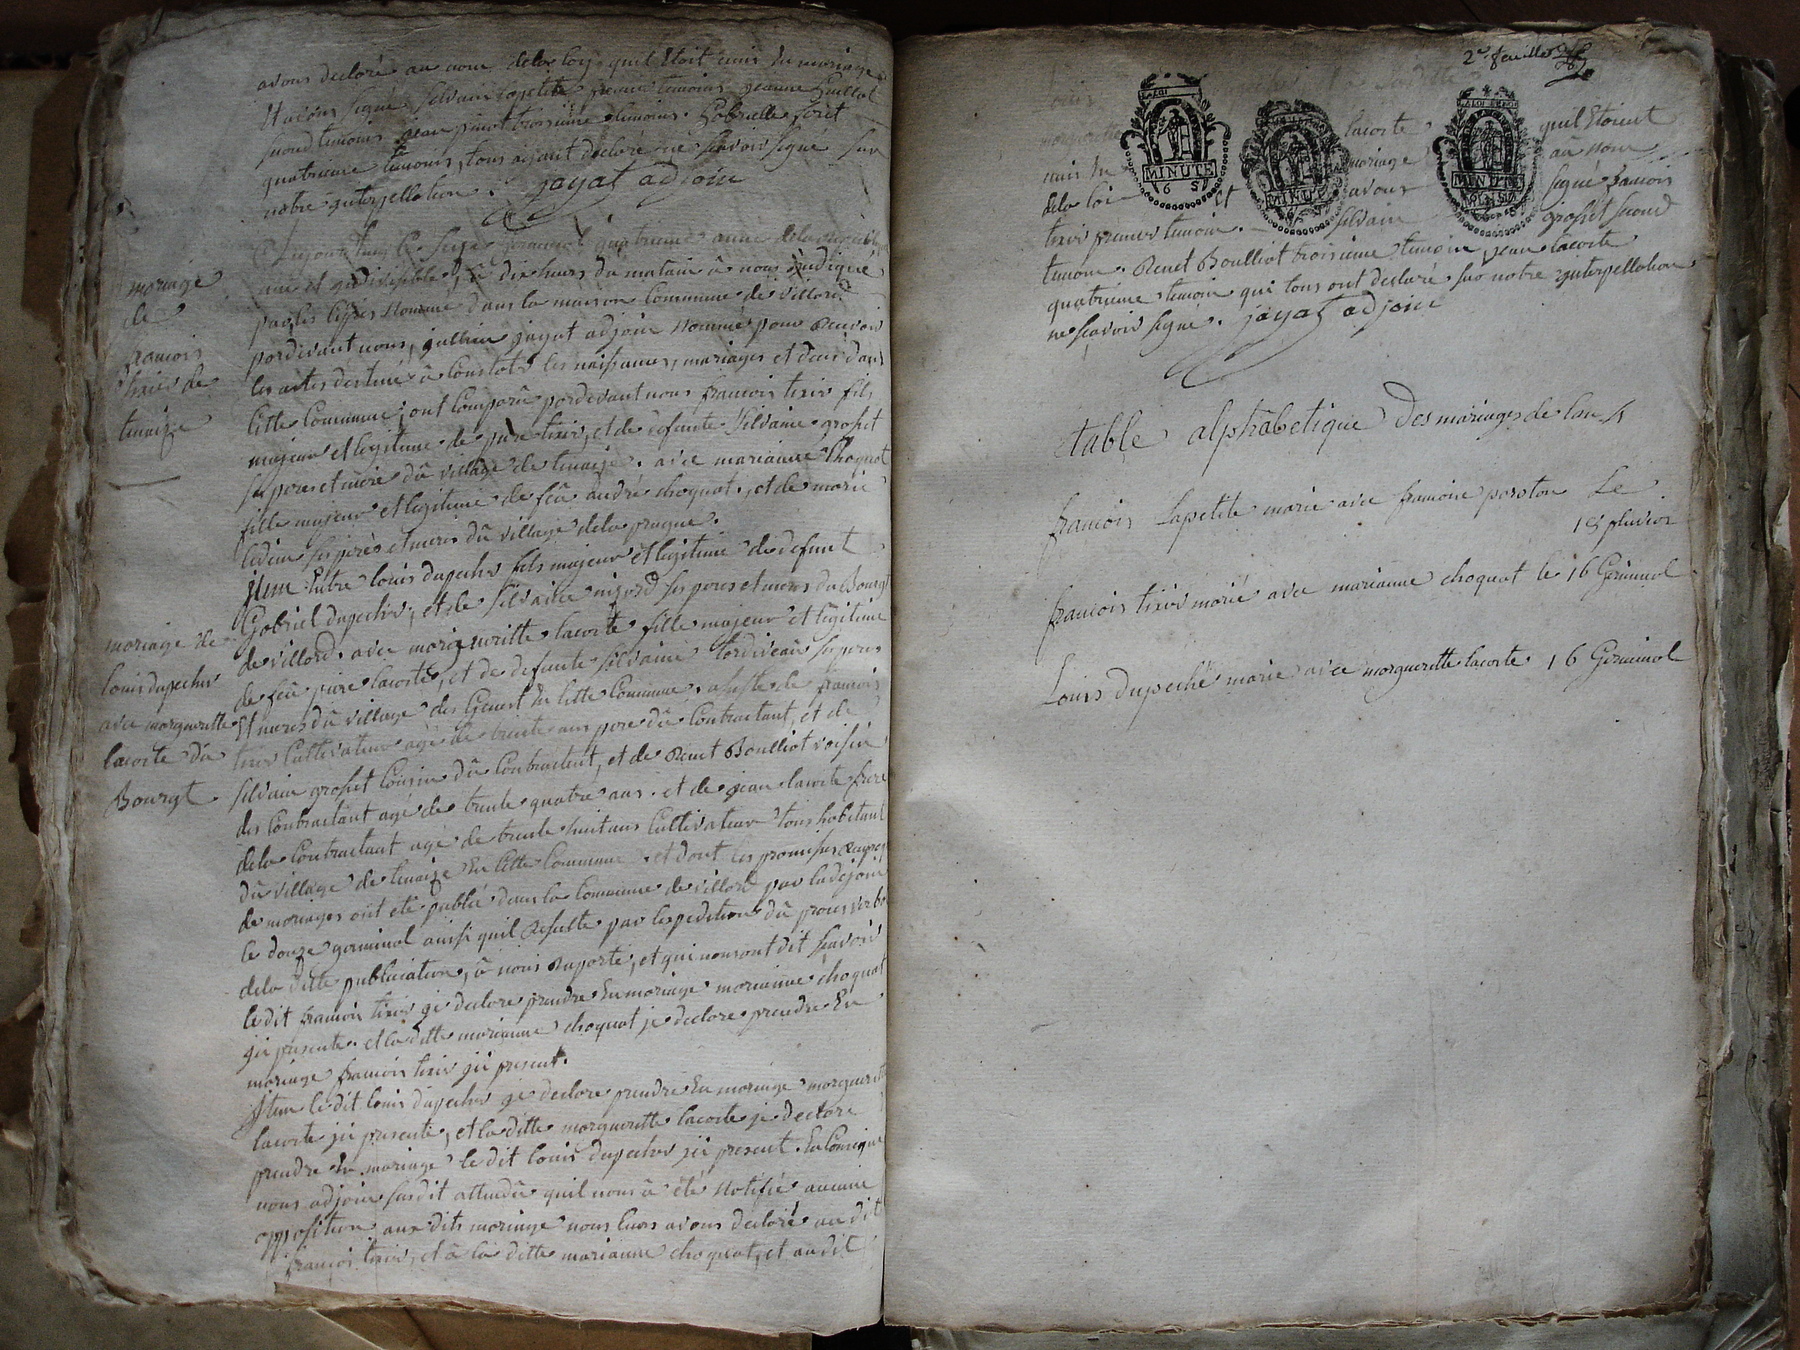 avons declaré au nom dela loy quil Etoit unis En mariage
Et avons signé silvain lapetite premier temoins jeanne Guillot
second temoins jean pinot troisieme temoins. Gabrielle foret
quatrieme temoins, tous aijant declaré ne scavoir signe sur
notre interpellation. jayat adjoin
aujourdhuy le seize germinal quatrieme anné dela republique
une et indivisible, à dix heurs du matain à nous indiqué
par les lépes Nommé dans la maison Commune de villard
pardevant nous, jullien jayat adjoin Nommé pour Recevoir
les actes destiné à Constater les naissances, mariages et deces dans
Cette Commune, ont Comparu pardevant nous francois tixir fils
majeur et legitime de piere tixir, et de defunte Silvaine grosset
ses peres et mere dû village de tinaize. avec marianne Choquat
fille majeur et legitime de feû andré choquat, et de marie
ses peres et meres dû village dela prugne.
jtem Entre louis dupecher fils majeur et legitime de defunt
Gabriel dupecher, et de Silvaine ses peres et meres du Bourgt
de villard. avec margueritte lacorte fille majeur et legitime
de feû piere lacorte, et de defunte silvaine tardiveau ses peres
Et meres dû village des Genest En Cette Commune, assiste de francois
tixir Cultivateur agé de trente ans pere dû Contractant, et de
silvain grosset Cousin dû Contractent, et de Renet Boulliot voisin
des Contractant agé de trente quatre ans. et de jean lacorte frere
dela Contractant agé de trente huit ans Cultivateur tous habitant
dû village de tinaize En Cette Commune. et dont les promesses
de mariages ont eté publié dans la Commune de villard par ladejoin
le douze germinal ainsi quil Resulte par lexpedition dû proces verbo
dela ditte publiciation, à nous Raporté, et qui nous ont dit scavoir
le dit francois tixir je declare prendre En mariage marianne choquat
jci presente. et la ditte marianne choquat je declare prendre En
mariage francois tixir jci present.
jtem le dit louis dupecher je declare prendre En mariage margueritte
lacorte jci presente, et la ditte margueritte lacorte je declare
prendre En mariage le dit louis dupecher jci present. En Conseque
nous adjoin susdit attendû quil nous à été Notifié aucune
opposition aux dits mariage nous leurs avons declaré au dit
francois tixir, et à la ditte marianne choquat, et au dit
mariage
de
francois
tixir de
tinaize
mariage de
louis dupecher
avec margueritte
lacorte du
Bourgt
2e feuille
louis
margueritte lacorte quil Etoient
unis En mariage au nom
dela loi Et avons signé francois
tixir premier temoin. silvain grosset second
temoin. Renet Boulliot troisieme temoin, jean lacorte
quatrieme temoin qui tous ont declaré sur notre jnterpellation
ne scavoir signé. jayat adjoin
LA LOI
MINUTE
6 S
LA LOI
MINUTE
LA LOI
MINUTE
table alphâbetique Des mariages de lan 4
francois lapetite marie avec francoise paroton Le
15 pluvios
francois tixir marié avec marianne choquat le 16 Germinal
Louis dupeché marie avec margueritte lacorte. 16 Germinal